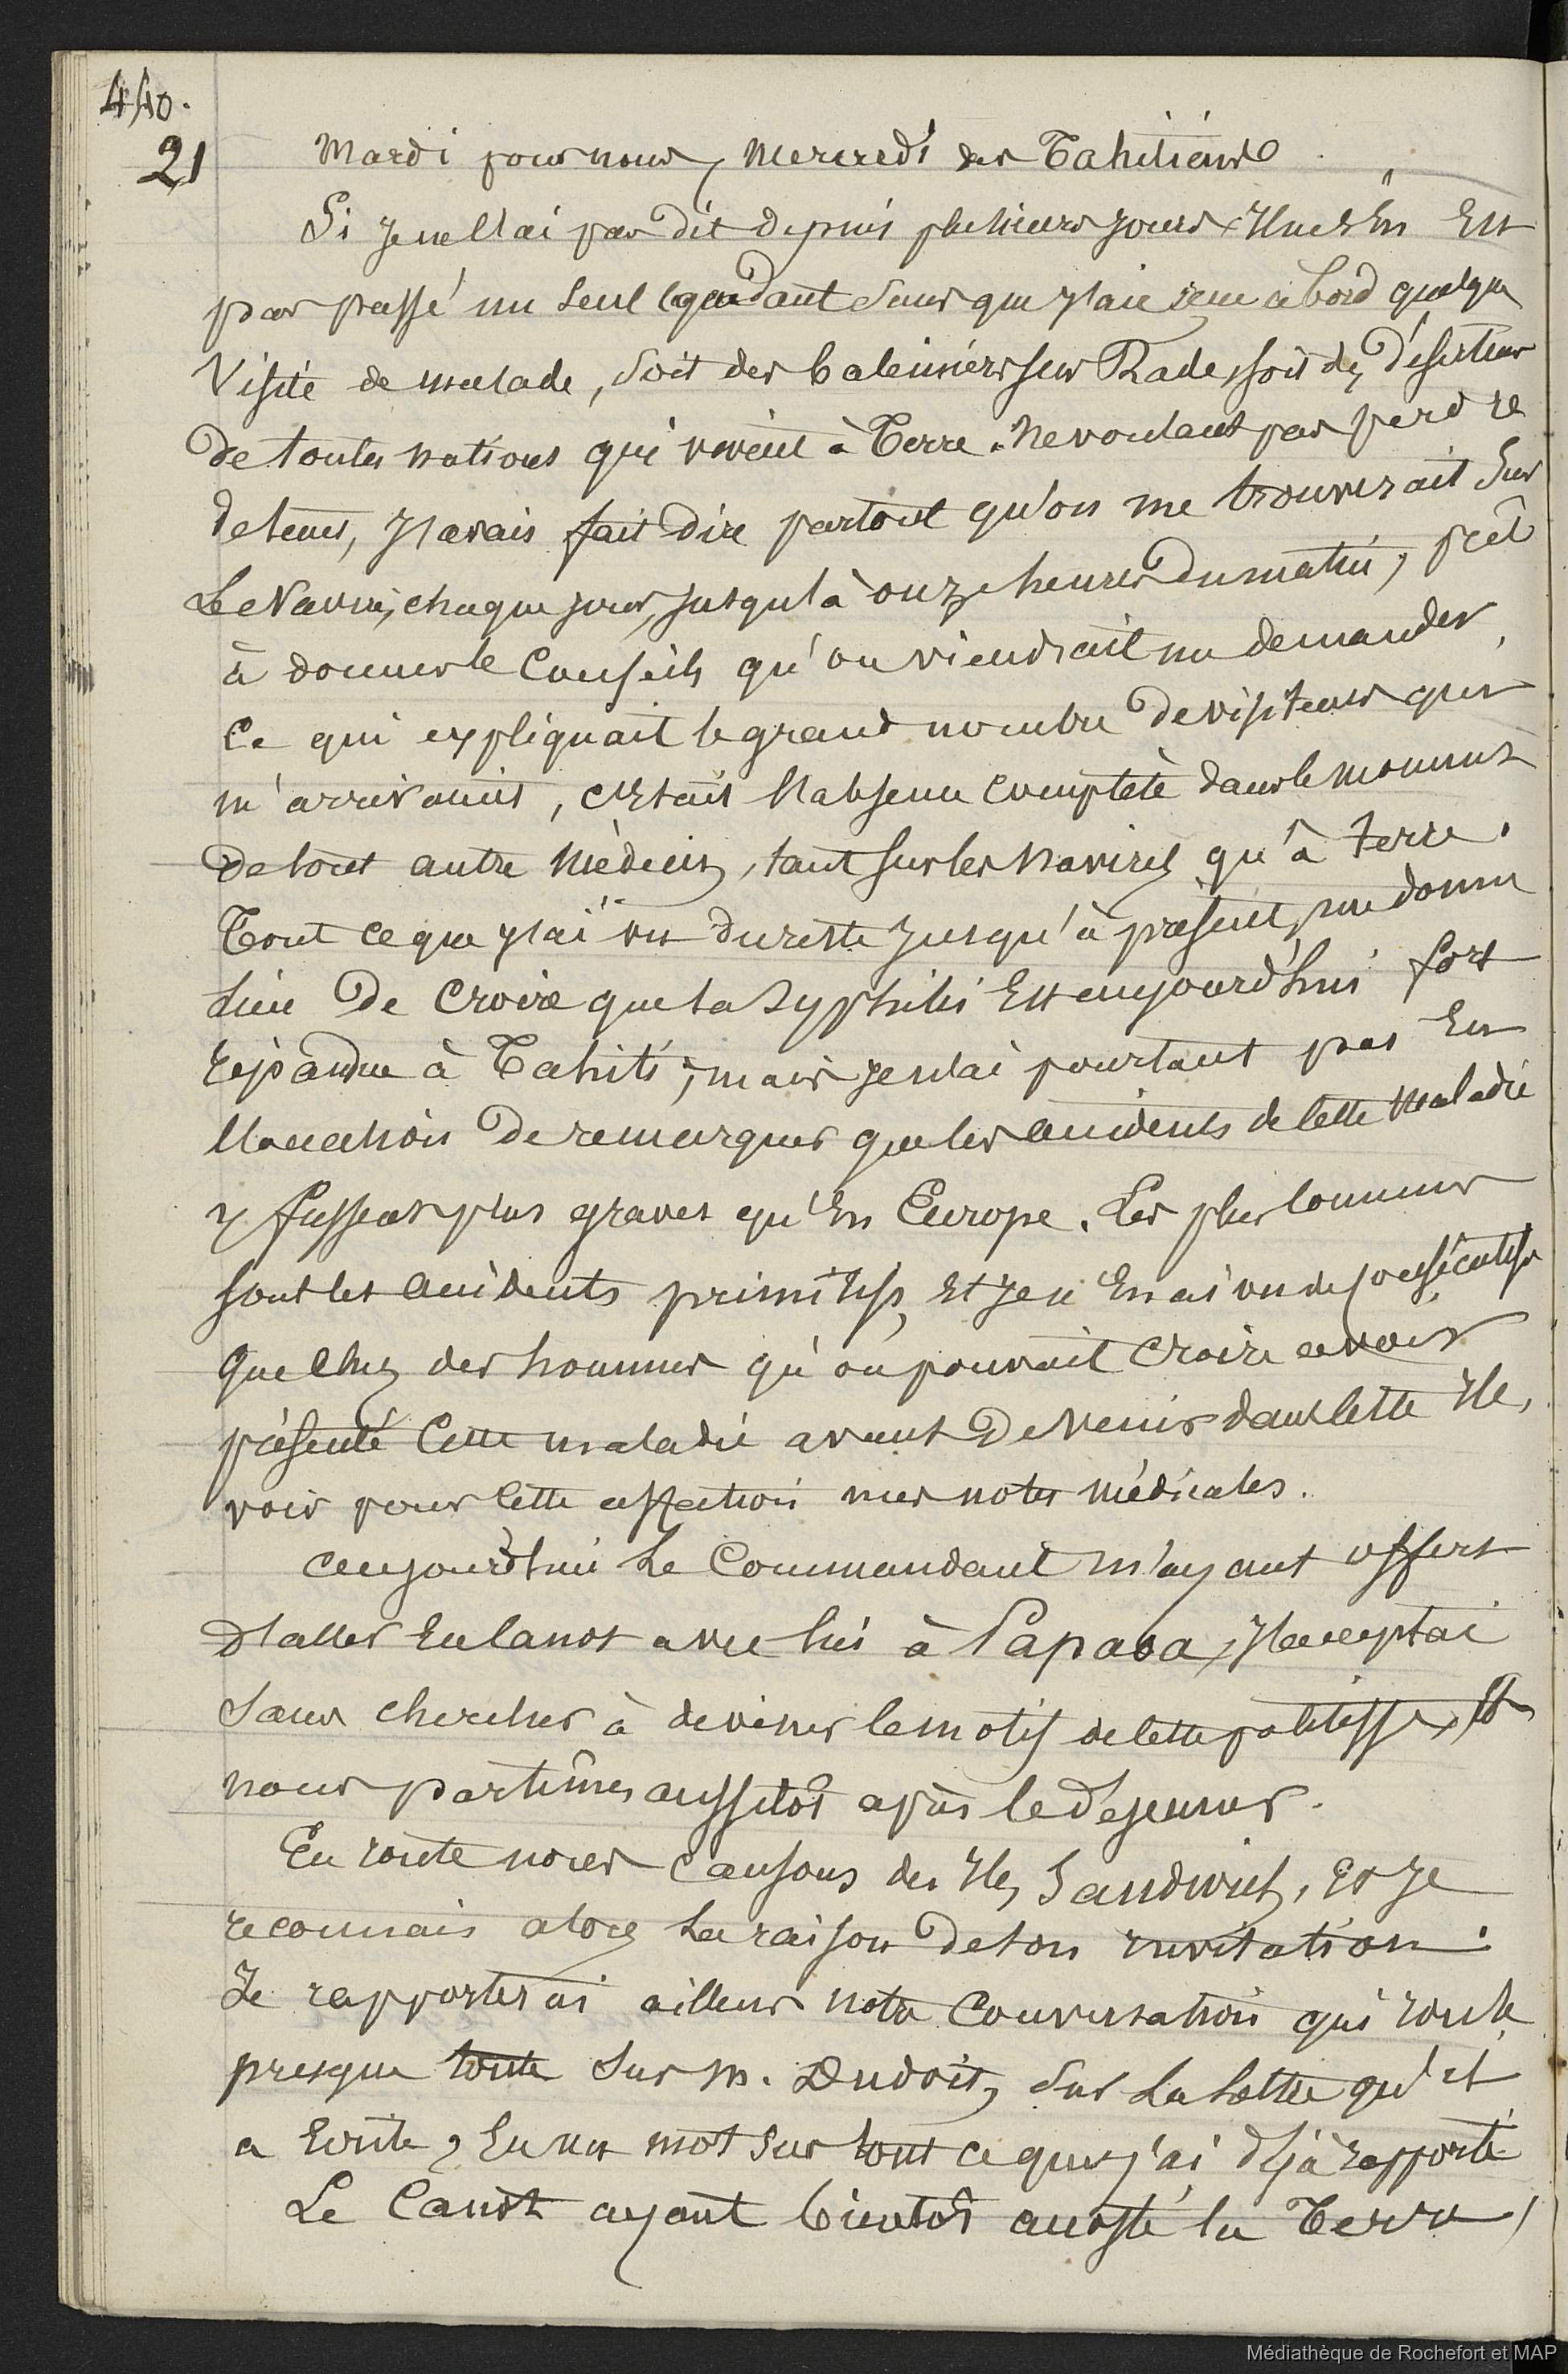 440.
21 Mardi pour nous, mercredi des Tahitiens
Si je ne l'ai pas dit depuis plusieurs jours, il ne s'en est
pas passé un seul cependant sans que j'aie reçu à bord quelque
visite de malade, soit des baleiniers sur Rade, soit des déserteurs
de toutes nations qui vivent à Terre. Ne voulant pas perdre
de tems, j'avais fait dire partout qu'on me trouverait sur
le Navire, chaque jour, jusqu'à onze heures du matin, prêt
à donner le Conseils qu'on viendrait me demander,
Ce qui expliquait le grand nombre de visiteurs qui
m'arrivaient, c'était l'absence complète dans le moment
de tout autre Médecin, tant sur les navires qu'à terre.
Tout ce que j'ai vu du reste jusqu'à présent, me donne
lieu de croire que la syphilis est aujourd'hui fort
répandue à Tahiti, mais je n'ai pourtant pas eu
l'occasion de remarquer que les accidents de cette maladie
y fussent plus graves qu'en Europe. Les plus communs
sont les accidents primitifs, et je n'en ai vu de consécutifs
que chez des hommes qu'on pouvait croire avoir
présenté cette maladie avant de venir dans cette Ile,
voir pour cette affection mes notes médicales.
aujourd'hui le Commandant m'ayant offert
d'aller en canot avec lui à Papaoa, j'acceptai
sans chercher à deviner le motif de cette politesse, et
nous partîmes aussitôt après le déjeuner.
En route nous causons des Iles Sandwich, et je
reconnais alors la raison de son invitation.
Je rapporterai ailleurs notre Conversation qui roule
presque toute sur M. Dudoit, sur la lettre qu'il
a écrite, en un mot sur tout ce que j'ai déjà rapporté
Le Canot ayant bientôt accosté la Terre,
Médiathèque de Rochefort et MAP